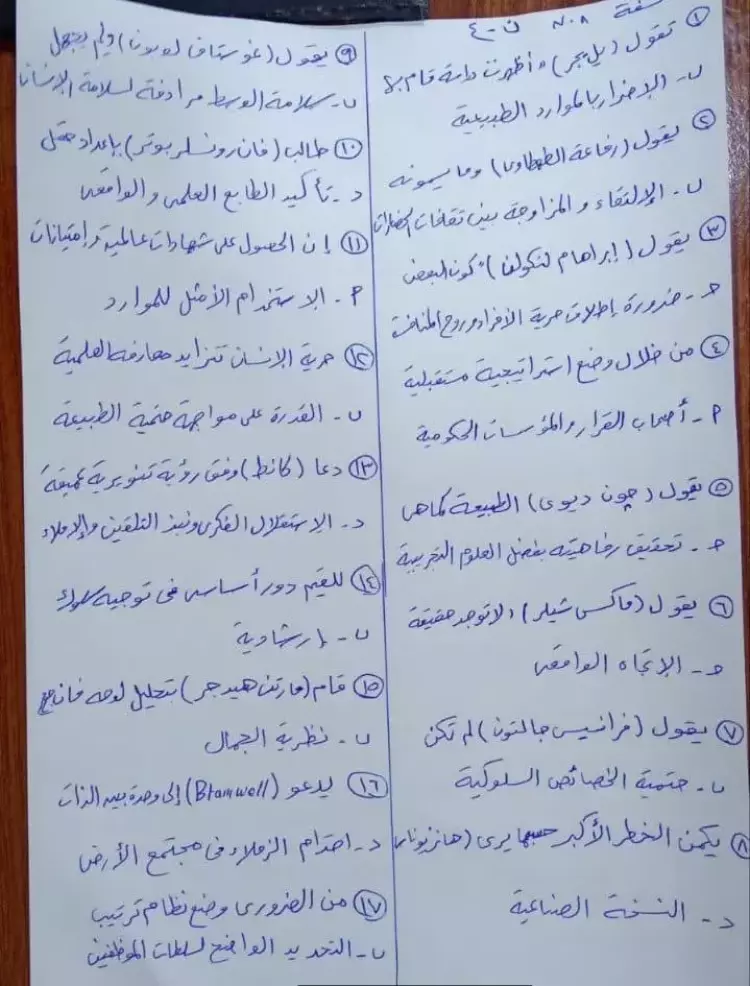 سفة ٨٠٨ ن - ٤
① تقول (بل يجر) "أظهرت دراسة قام بها
ب - الإضرار بالموارد الطبيعية
② يقول (رفاعة الطهطاوى) وما يسمونه
ب - الإلتقاء والمزاوجة بين ثقافات الحضارات
③ يقول (إبراهام لنكولن) "كون البعض
حـ - ضرورة إطلاق حرية الأفراد وروح المنافسة
④ من خلال وضع استراتيجية مستقبلية
P - أصحاب القرار والمؤسسات الحكومية
⑤ يقول (چون ديوى) الطبيعة كما هى
حـ - تحقيق رفاهيته بفضل العلوم التجريبية
⑥ يقول (ماكس شيلر) "لا توجد حقيقة
حـ - الإتجاه الواقعى
⑦ يقول (فرانسيس جالتون) لم تكن
ب - حتمية الخصائص السلوكية
⑧ يكمن الخطر الأكبر حسبما يرى (هانز يوناس)
د - النسخة الصناعية
⑨ يقول (غوستاف لوبون) ولم يجهل
ب - سلامة الوسط مرادفة لسلامة الإنسان
⑩ طالب (فان رونسلر بوتر) بإعداد حقل
د - تأكيد الطابع العلمى والواقعى
⑪ إن الحصول على شهادات عالمية وإمتيازات
P - الاستخدام الأمثل للموارد
⑫ حرية الإنسان تتزايد معارفه العلمية
ب - القدرة على مواجهة حتمية الطبيعة
⑬ دعا (كانط) وفق رؤية تنويرية عميقة
د - الاستقلال الفكرى ونبذ التلقين والإملاء
⑭ للقيم دور أساسى فى توجيه سلوك
ب - إرشادية
⑮ قام (مارتن هيدجر) بتحليل لوحة فان جوخ
ب - نظرية الجمال
⑯ يدعو (Blamwell) إلى وحدة بين الذات
د - احترام الزملاء فى مجتمع الأرض
⑰ من الضرورى وضع نظام ترتيب
ب - التحديد الواضح لسلطات الموظفين